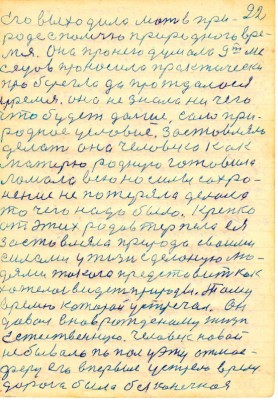 22
его выходила мать в при-
роде столично природного вре-
мя. Она про него думала 9ть ме-
сецов проносила практически
про берегла да про ждалася
время. она не знала ни чего
что будет далше, само при-
родное условие, заставляло
делать она человека как
матерю родную готовила
ломала всю но силы сохро-
нение не потеряла делала
то чего надо было. Крепко
от этих родов терпела ея
заставляла природа своими
силами у жизни сделаную лю-
дями такого представить как
хотелося видеть природы. Тому
время которой устречал. Он
давал в новрожденому жизнь
естественную. человек новой
небывало попал у эту атмос-
феру его впервые устрело время.
дорога была бесконечная